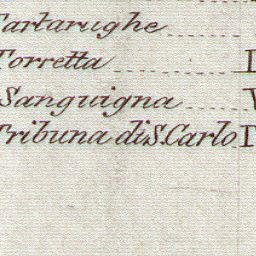 Tartarughe
Torretta
Sanguigna
Tribuna di S. Carlo